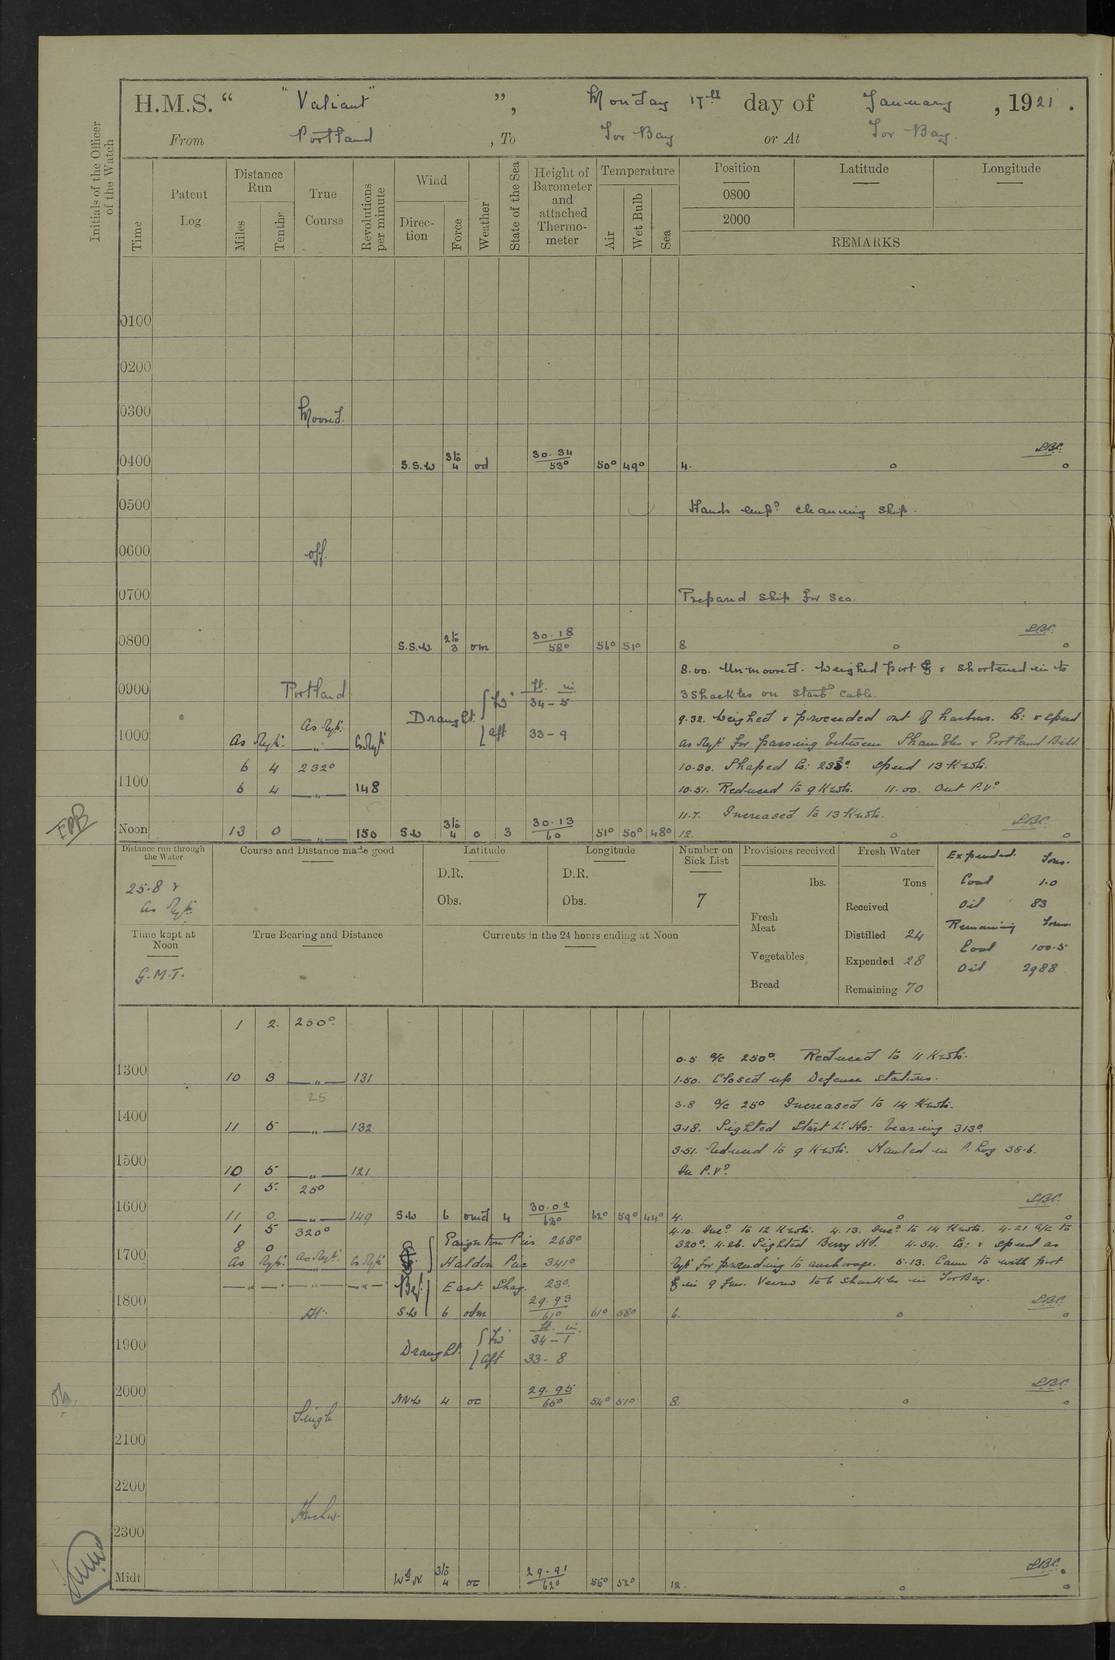 H.M.S. “ "Valiant" ”, Monday 17th day of January , 1921 .
From Portland , To Tor Bay or At Tor Bay.
Initials of the Officer of the Watch
Time
Patent Log
Distance Run
Miles
Tenths
True Course
Revolutions per minute
Wind
Direction
Force
Weather
State of the Sea
Height of Barometer and attached Thermometer
Temperature
Air
Wet Bulb
Sea
Position
Latitude
Longitude
0800
2000
REMARKS
0100
0200
0300 Moored.
0400 S.S.W 3 to 4 od 30.34 53° 50° 49° 4.
0500 Hands emp? cleaning ship.
0600 off.
0700 Prepared ship for sea.
0800 S.S.W 2 to 3 om 30.18 58° 56° 51° 8
8.00. Unmoored. Weighed port & shortened in to
0900 Portland. 3 shackles on starb? cable.
Draught { for? ft. in 34 - 5
{ aft 33 - 9
As Reqte. 9.32. Weighed & proceeded out of harbour. Co: & speed
1000 As Reqte. as Reqte for passing between Shambles & Portland Bill
6 4 232° 10.30. Shaped Co: 232°. Speed 13 Knots.
1100 6 4 —„— 148 10.51. Reduced to 9 Knots. 11.00. Out P.V?
11.7. Increased to 13 Knots.
Noon 13 0 —„— 150 S.W 3 to 4 o 3 30.13 60 51° 50° 48° 12.
Distance run through the Water
25.8 &
as Reqte.
Course and Distance made good
Latitude
D.R.
Obs.
Longitude
D.R.
Obs.
Number on Sick List
7
Provisions received
lbs.
Fresh Meat
Vegetables
Bread
Fresh Water
Tons
Received
Distilled 24
Expended 28
Remaining 70
Expended. Tons.
Coal 1.0
Oil 83
Remaining Tons
Coal 100.5
Oil 2988
Time kept at Noon
G.M.T.
True Bearing and Distance
Currents in the 24 hours ending at Noon
1 2. 250°
0.5 a/c 250°. Reduced to 11 Knots.
1300 10 3 —„— 131 1.50. Closed up Defence stations.
25 3.8 a/c 25° Increased to 14 Knots.
1400 11 5 —„— 132 3.18. Sighted Start Lt. Ho: bearing 313°.
3.51. Reduced to 9 Knots. Hauled in P. Log 38.6.
1500 10 5 —„— 121 In P.V?
1 5. 25°
1600 11 0. —„— 149 S.W 6 omd 4 30.02 62° 62° 59° 44° 4.
1 5 320° 4.10. Inc? to 12 Knots. 4.13. Inc? to 14 Knots. 4.21 a/c to
8 0 Paignton Pier 268° 320°. 4.26. Sighted Berry Hd. 4.54. Co: & speed as
1700 As Reqte. as Reqte. as Reqte Haldon Pier 341° reqte for proceeding to anchorage. 5.13. Came to with port
East Shag. 23°. in 9 fms. Veered to 6 shackles in Tor Bay.
1800 At. S.W 6 odm 29.93 61° 61° 58° 6.
Draught. { for? ft. in. 34 - 1
1900 { aft 33 - 8
2000 NNW 4 oc 29.95 60° 54° 51° 8.
Single
2100
2200
Anchor.
2300
Midt. W by N 3 to 4 oc 29.91 62° 55° 52° 12.